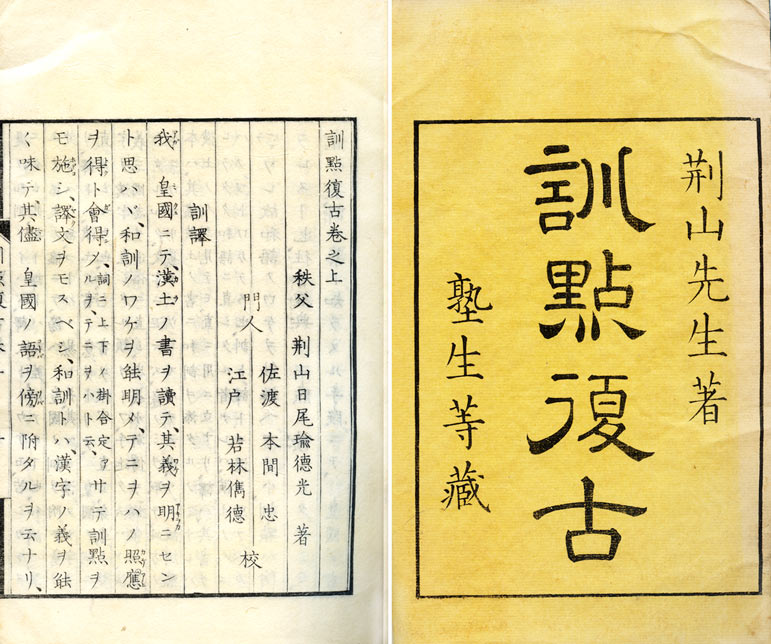 荆山先生著
訓點復古
塾生等藏
訓點復古卷之上
秩父 荆山日尾瑜德光 著
佐渡 本間 忠
門人 校
江戸 若林儁德
訓譯
我 皇國ニテ、漢土ノ書ヲ讀テ、其義ヲ明ニセン
ト思ハヾ、和訓ノワケヲ能明メ、テニヲハノ照應
ヲ得ト會得ノルヲ、テニヲハト云、詞ニ上下ノ掛合定アサテ訓點ヲ
モ施シ、譯文ヲモスベシ、和訓トハ、漢字ノ義ヲ能
く味テ、其儘 皇國ノ語ヲ傍ニ附タルヲ云ナリ、